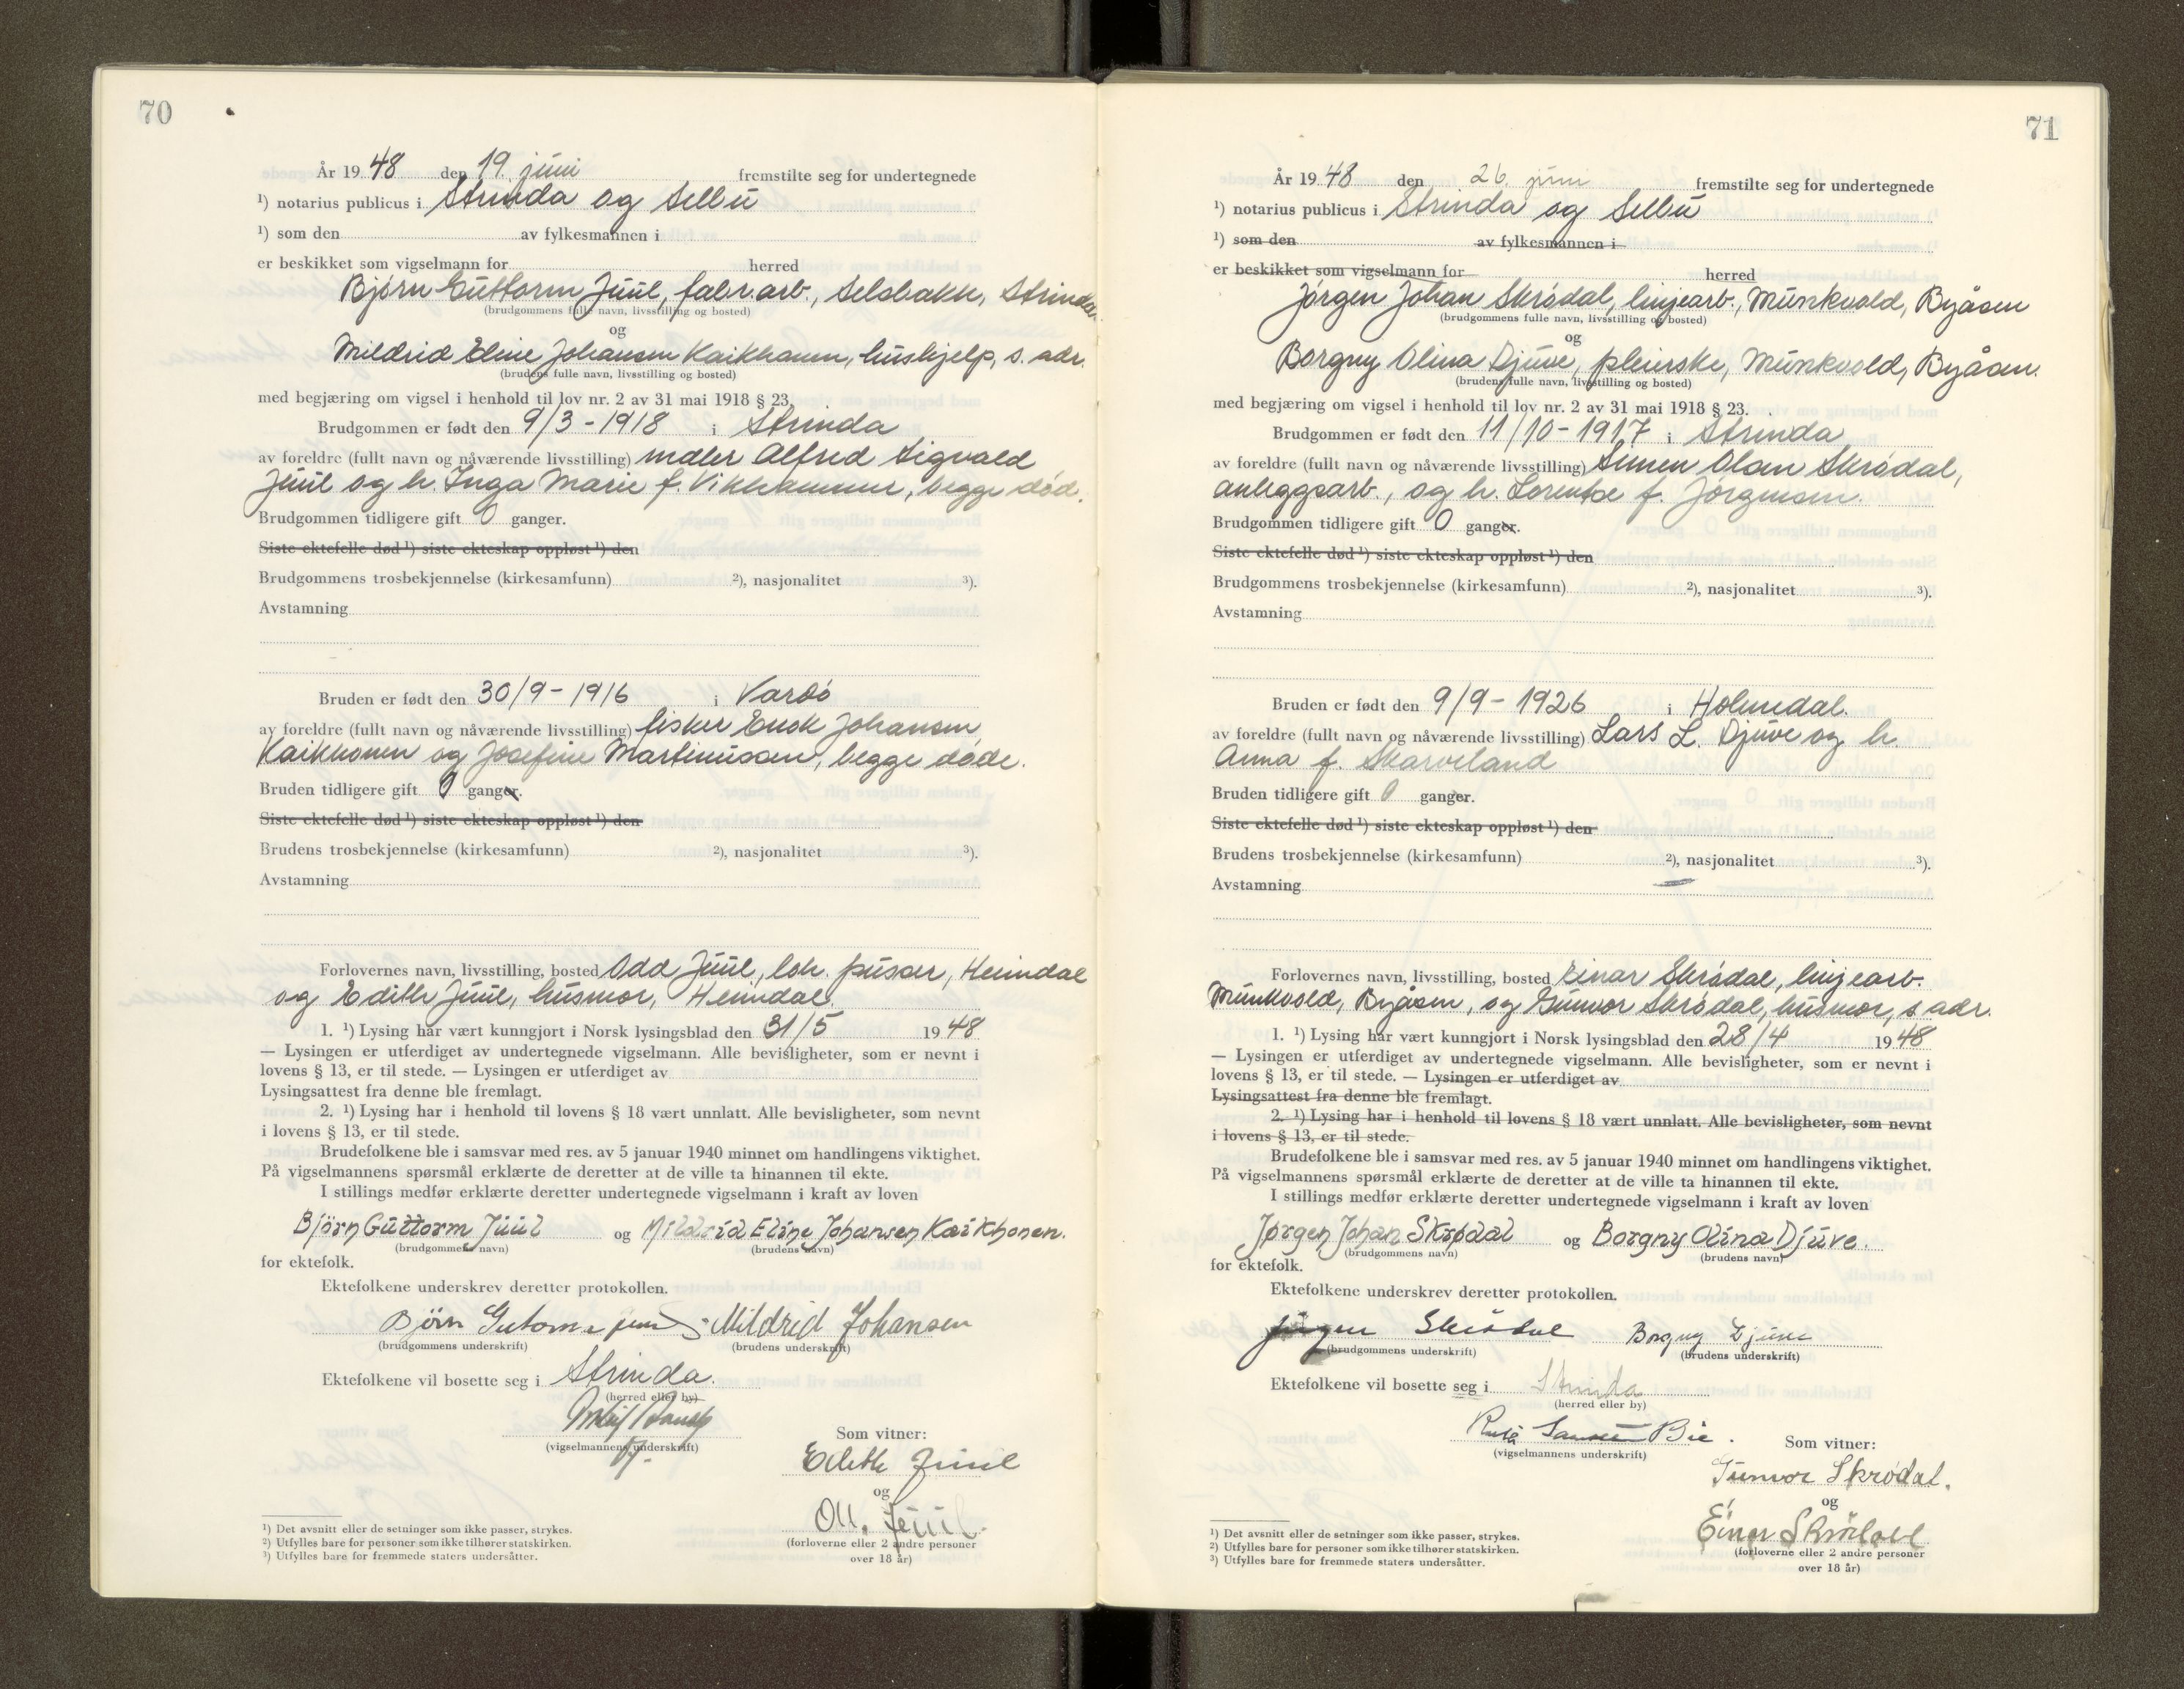 70
År 1948 den 19. juni fremstilte seg for undertegnede
¹) notarius publicus i Strinda og Selbu
¹) som den av fylkesmannen i
er beskikket som vigselmann for herred
Bjørn Guttorm Juul, fabr.arb., Selsbakk, Strinda
(brudgommens fulle navn, livsstilling og bosted)
og
Mildrid Eline Johansen Kaikkonen, hushjelp, s. adr.
(brudens fulle navn, livsstilling og bosted)
med begjæring om vigsel i henhold til lov nr. 2 av 31 mai 1918 § 23.
Brudgommen er født den 9/3 - 1918 i Strinda
av foreldre (fullt navn og nåværende livsstilling) maler Alfred Sigvald
Juul og h. Inga Marie f. Vikhammer, begge død.
Brudgommen tidligere gift 0 ganger.
Siste ektefelle død ¹) siste ekteskap oppløst ¹) den
Brudgommens trosbekjennelse (kirkesamfunn) ²), nasjonalitet ³).
Avstamning
Bruden er født den 30/9 - 1916 i Vardö
av foreldre (fullt navn og nåværende livsstilling) fisker Enok Johansen
Kaikkonen og Josefine Martinussen, begge døde.
Bruden tidligere gift 0 ganger.
Siste ektefelle død ¹) siste ekteskap oppløst ¹) den
Brudens trosbekjennelse (kirkesamfunn) ²), nasjonalitet ³).
Avstamning
Forlovernes navn, livsstilling, bosted Odd Juul, lok. pusser, Heimdal
og Edith Juul, husmor, Heimdal.
1. ¹) Lysing har vært kunngjort i Norsk lysingsblad den 31/5 1948
— Lysingen er utferdiget av undertegnede vigselmann. Alle bevisligheter, som er nevnt i
lovens § 13, er til stede. — Lysingen er utferdiget av
Lysingsattest fra denne ble fremlagt.
2. ¹) Lysing har i henhold til lovens § 18 vært unnlatt. Alle bevisligheter, som nevnt
i lovens § 13, er til stede.
Brudefolkene ble i samsvar med res. av 5 januar 1940 minnet om handlingens viktighet.
På vigselmannens spørsmål erklærte de deretter at de ville ta hinannen til ekte.
I stillings medfør erklærte deretter undertegnede vigselmann i kraft av loven
Björn Guttorm Juul og Mildrid Eline Johansen Kaikkhonen.
(brudgommens navn) (brudens navn)
for ektefolk.
Ektefolkene underskrev deretter protokollen.
Björn Gutorm Juul Mildrid Johansen
(brudgommens underskrift) (brudens underskrift)
Ektefolkene vil bosette seg i Strinda.
(herred eller by)
(vigselmannens underskrift)
Som vitner:
Edith Juul
og
Juul.
(forloverne eller 2 andre personer
over 18 år)
¹) Det avsnitt eller de setninger som ikke passer, strykes.
²) Utfylles bare for personer som ikke tilhører statskirken.
³) Utfylles bare for fremmede staters undersåtter.
71
År 1948 den 26. juni fremstilte seg for undertegnede
¹) notarius publicus i Strinda og Selbu
¹) som den av fylkesmannen i
er beskikket som vigselmann for herred
Jørgen Johan Skrødal, linjearb., Munkvold, Byåsen
(brudgommens fulle navn, livsstilling og bosted)
og
Borgny Olina Djuve, pleierske, Munkvold, Byåsen.
(brudens fulle navn, livsstilling og bosted)
med begjæring om vigsel i henhold til lov nr. 2 av 31 mai 1918 § 23.
Brudgommen er født den 11/10 - 1917 i Strinda
av foreldre (fullt navn og nåværende livsstilling) Simen Olan Skrødal,
anleggsarb., og h. Lorentse f. Jørgensen.
Brudgommen tidligere gift 0 ganger.
Siste ektefelle død ¹) siste ekteskap oppløst ¹) den
Brudgommens trosbekjennelse (kirkesamfunn) ²), nasjonalitet ³).
Avstamning
Bruden er født den 9/9 - 1926 i Holmedal.
av foreldre (fullt navn og nåværende livsstilling) Lars L. Djuve og h.
Anna f. Skarveland
Bruden tidligere gift 0 ganger.
Siste ektefelle død ¹) siste ekteskap oppløst ¹) den
Brudens trosbekjennelse (kirkesamfunn) ²), nasjonalitet ³).
Avstamning
Forlovernes navn, livsstilling, bosted Einar Skrødal, linjearb.
Munkvold, Byåsen, og Gunvor Skrødal, husmor, s. adr.
1. ¹) Lysing har vært kunngjort i Norsk lysingsblad den 28/4 1948
— Lysingen er utferdiget av undertegnede vigselmann. Alle bevisligheter, som er nevnt i
lovens § 13, er til stede. — Lysingen er utferdiget av
Lysingsattest fra denne ble fremlagt.
2. ¹) Lysing har i henhold til lovens § 18 vært unnlatt. Alle bevisligheter, som nevnt
i lovens § 13, er til stede.
Brudefolkene ble i samsvar med res. av 5 januar 1940 minnet om handlingens viktighet.
På vigselmannens spørsmål erklærte de deretter at de ville ta hinannen til ekte.
I stillings medfør erklærte deretter undertegnede vigselmann i kraft av loven
Jørgen Johan Skrødal og Borgny Olina Djuve.
(brudgommens navn) (brudens navn)
for ektefolk.
Ektefolkene underskrev deretter protokollen.
Jørgen Skrödal Borgny Djuve
(brudgommens underskrift) (brudens underskrift)
Ektefolkene vil bosette seg i Strinda
(herred eller by)
Bie.
(vigselmannens underskrift)
Som vitner:
Gunvor Skrødal.
og
Einar Skrödal
(forloverne eller 2 andre personer
over 18 år)
¹) Det avsnitt eller de setninger som ikke passer, strykes.
²) Utfylles bare for personer som ikke tilhører statskirken.
³) Utfylles bare for fremmede staters undersåtter.